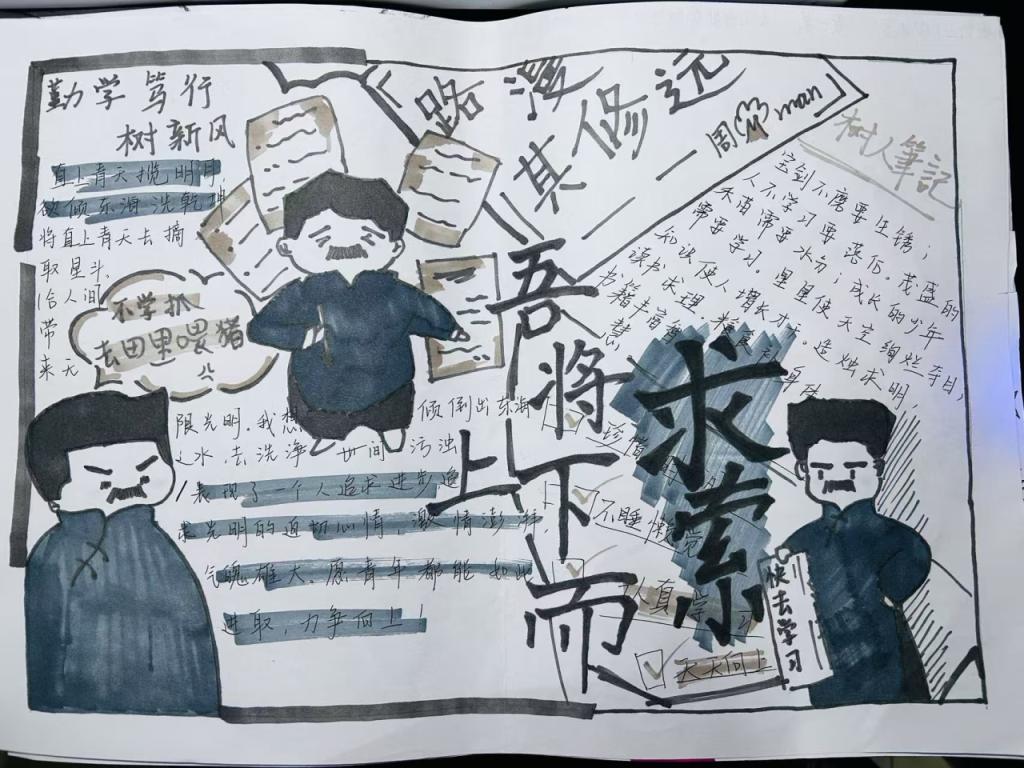 勤学笃行
树新风
直上青天揽明月,
欲倾东海洗乾坤
将直上青天去摘
取星斗,
给人间
带
来无
不学扒
去田里喂猪
限光明.我想
倾倒出东海
之水,去洗净
世间污浊
表现了一个人追求进步追
求光明的迫切心情,激情澎湃,
气魄雄大.愿青年都能如此
进取,力争向上!
路漫
其修远
——周
man
吾将
上下
而
求索
树人筆記
宝剑不磨要生锈;
人不学习要落伍.茂盛的
禾苗需要水分;成长的少年
需要学习.星星使天空绚烂夺目,
知识使人增长才干.造烛求明,
读书求理.
书籍
不睡懒觉
认真
天天向上
快去学习